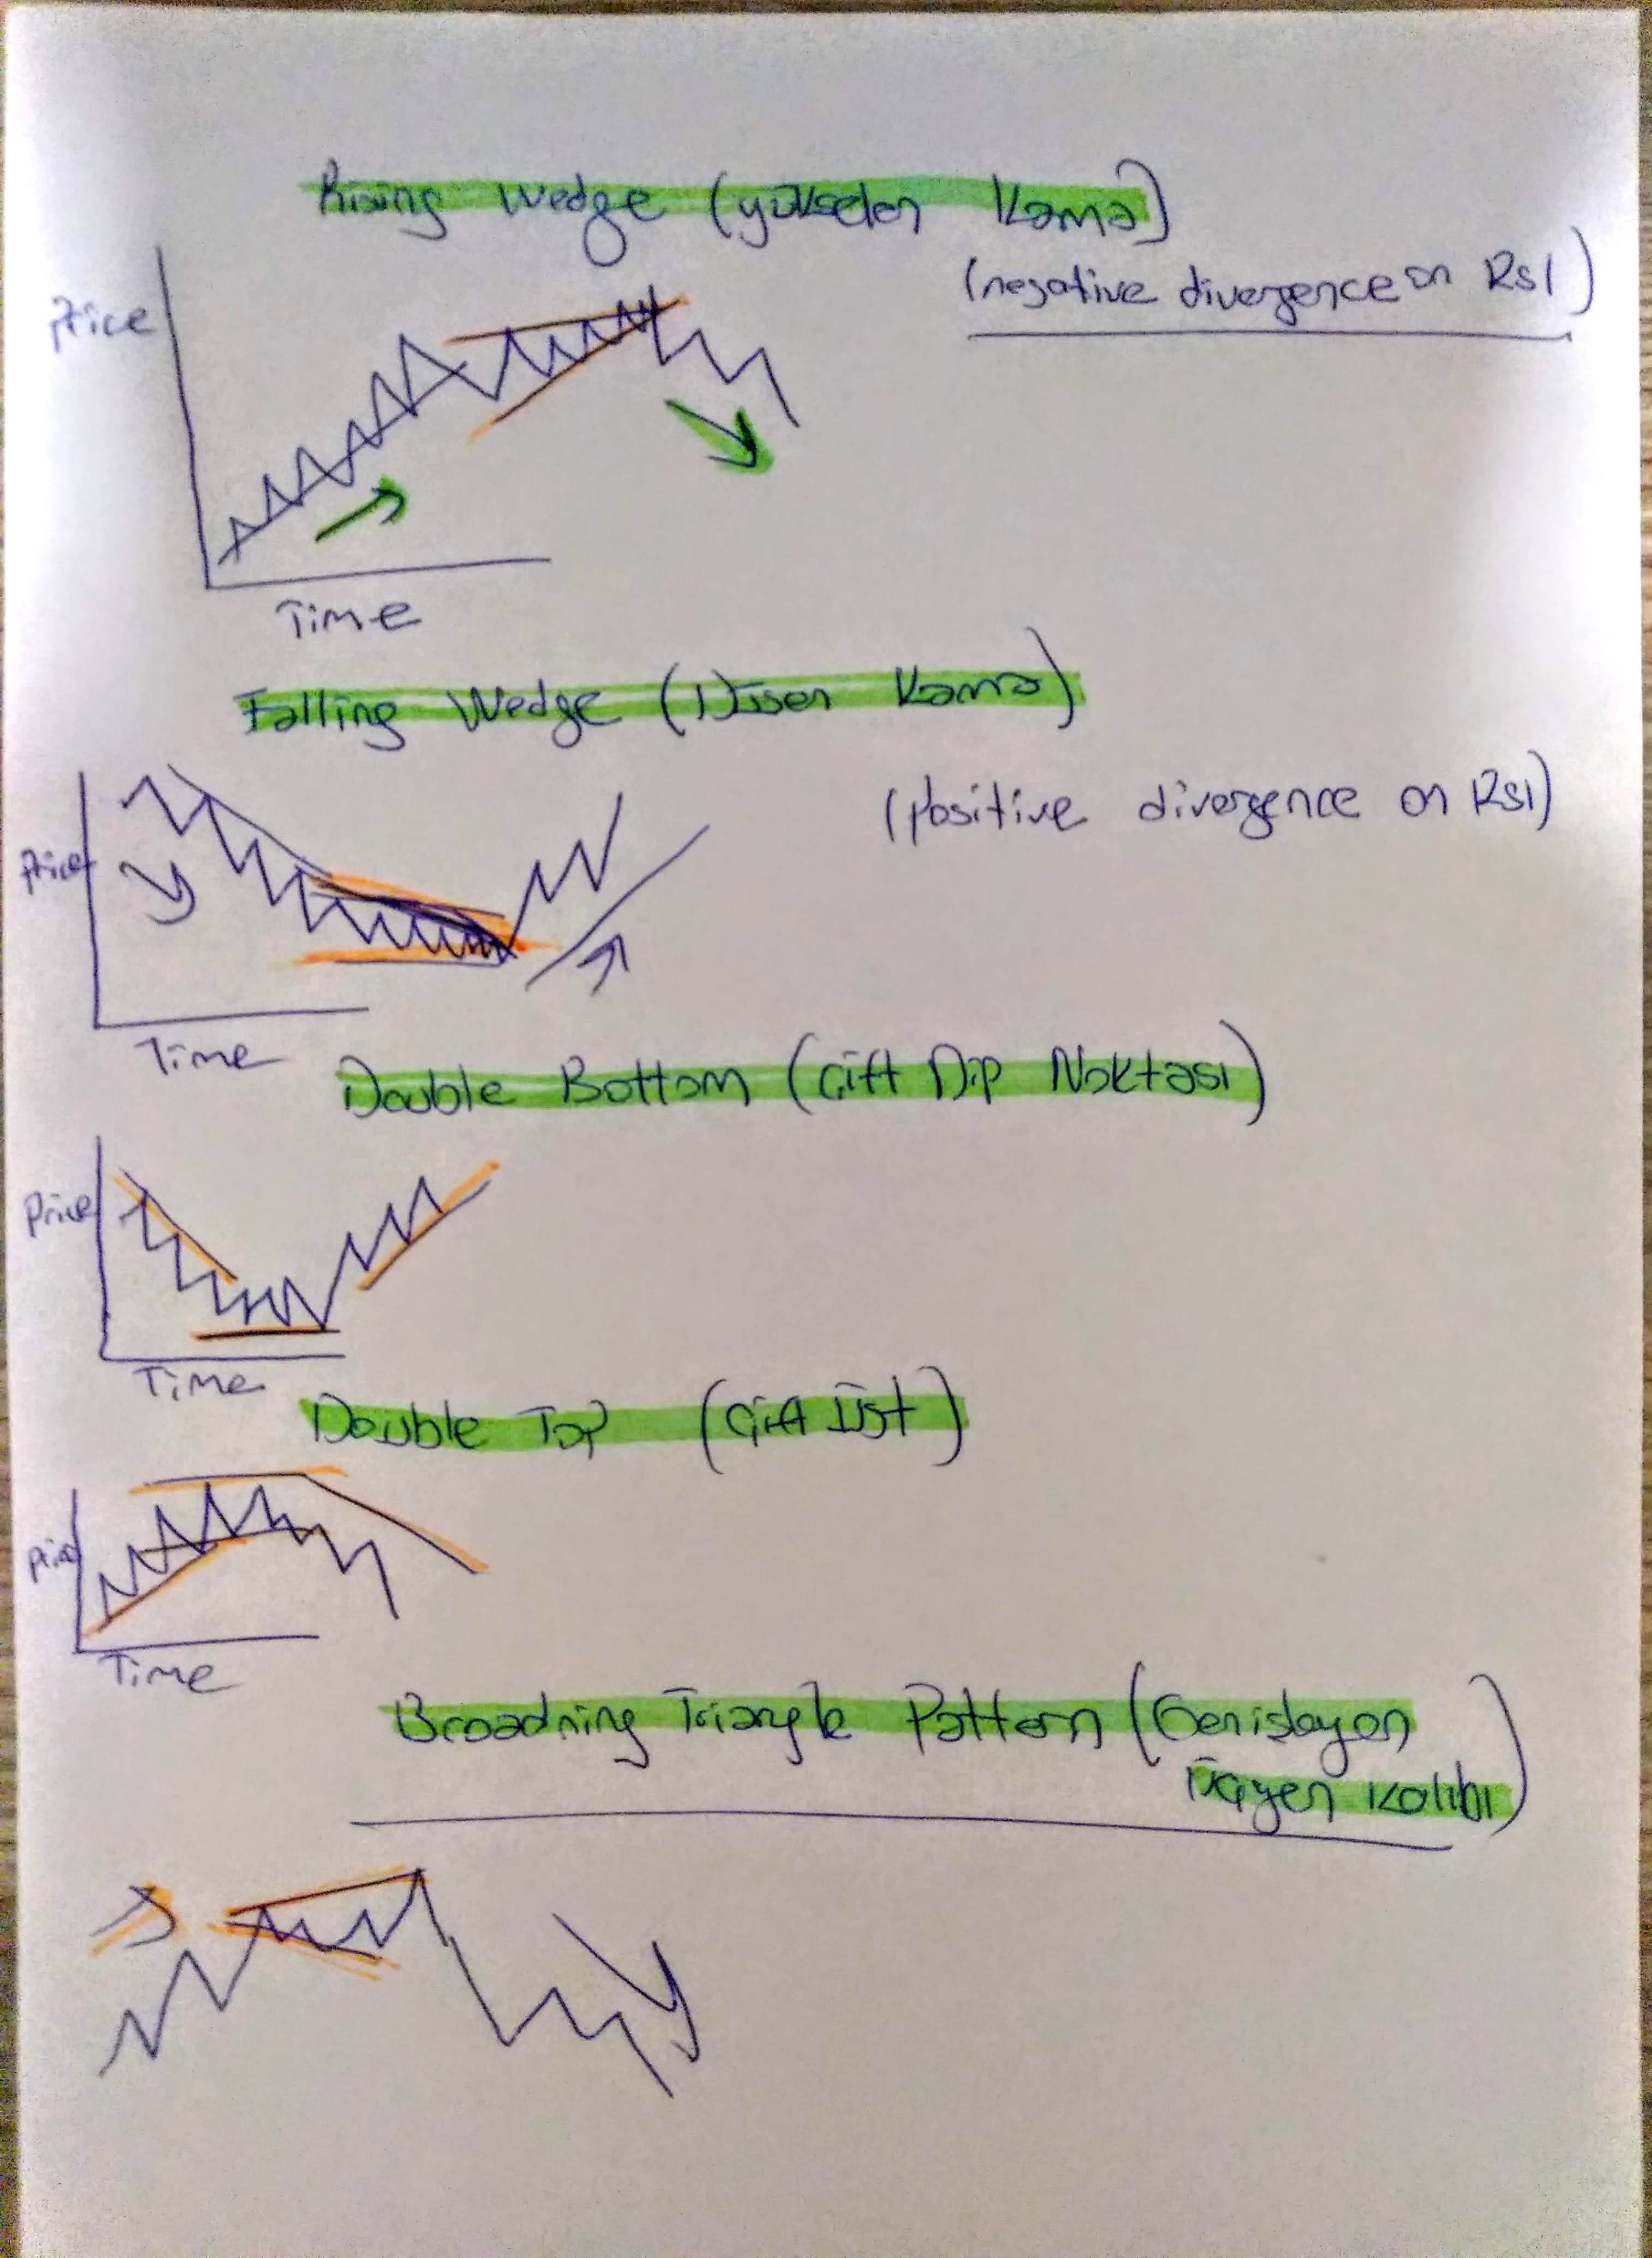 Rising Wedge (yükselen Kama)
(negative divergence on RSI)
Price
Time
Falling Wedge (Düşen Kama)
(positive divergence on RSI)
Price
Time
Double Bottom (Çift Dip Noktası)
Price
Time
Double Top (Çift Üst)
Price
Time
Broadning Triangle Pattern (Genisleyen
Üçgen Kalıbı)